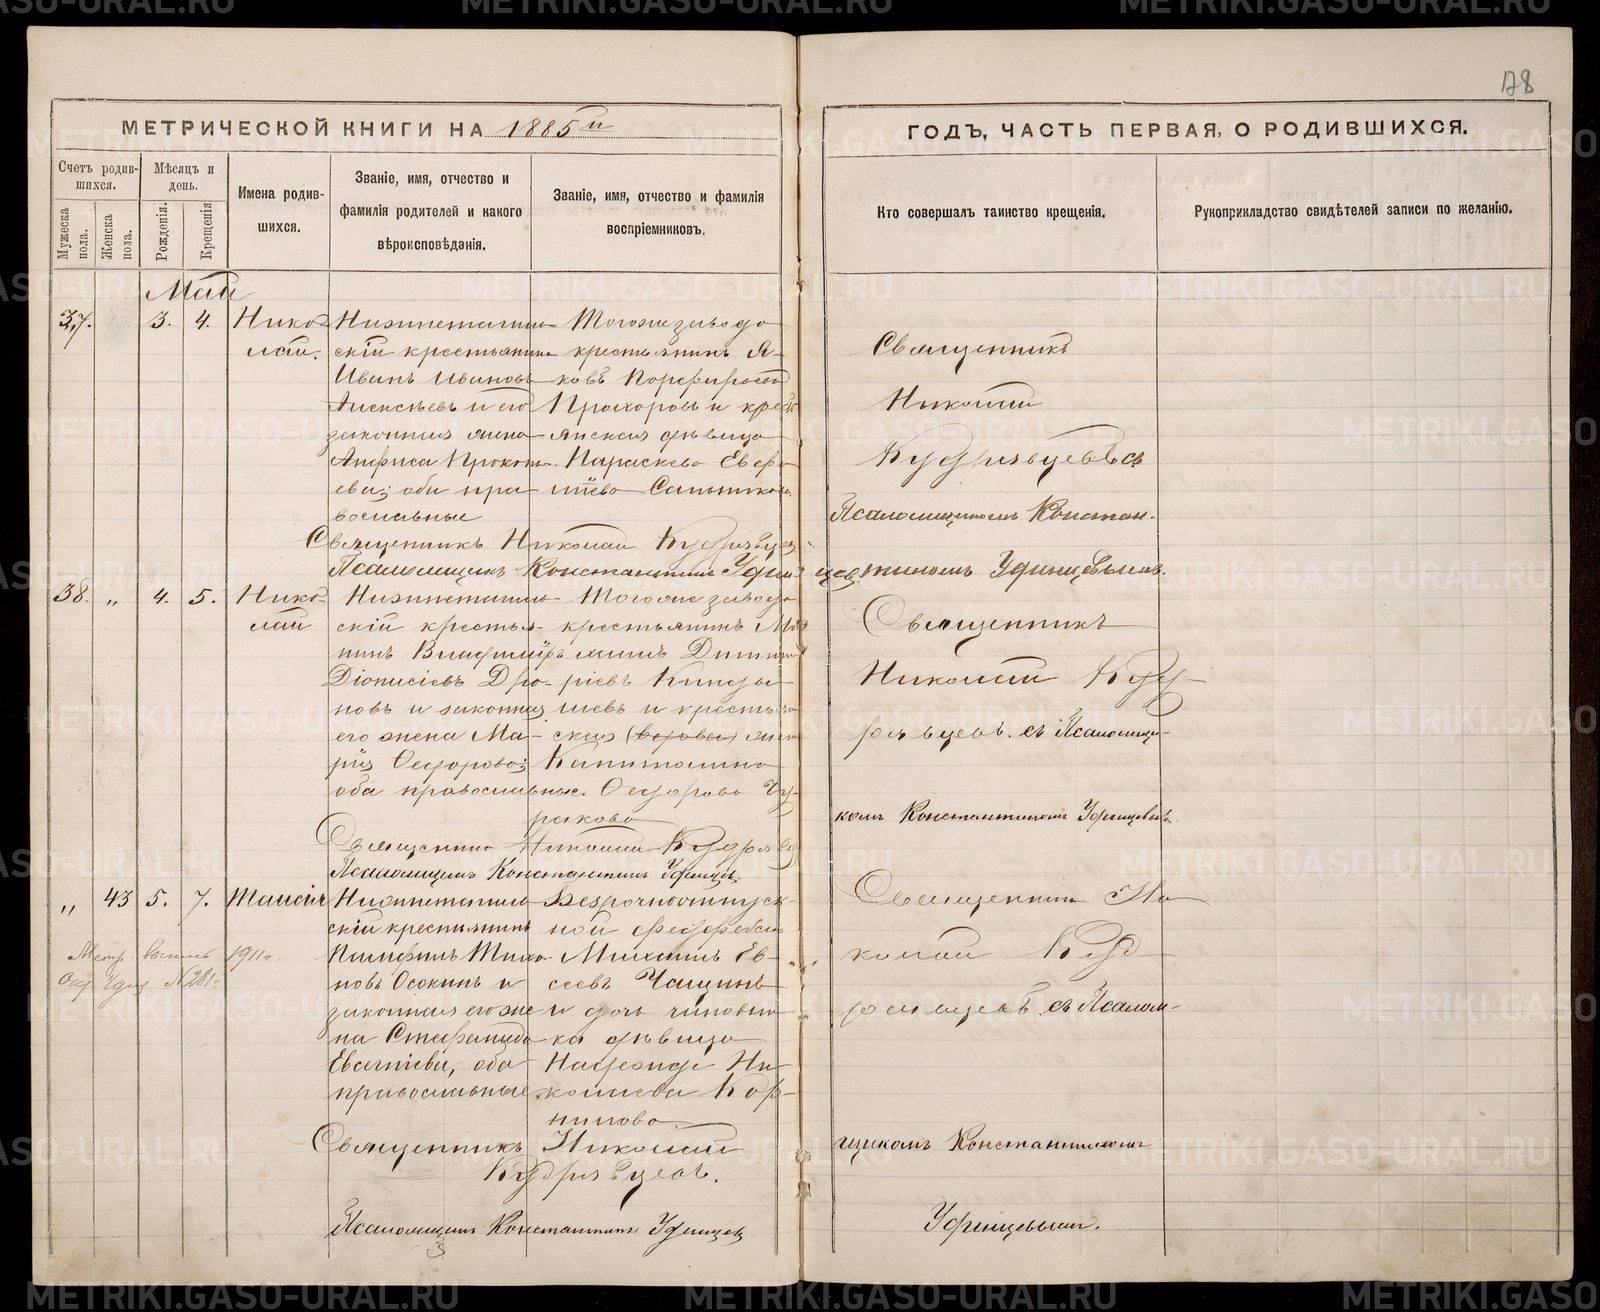 178
МЕТРИЧЕСКОЙ КНИГИ НА 1885й
ГОДЪ, ЧАСТЬ ПЕРВАЯ, О РОДИВШИХСЯ.
Счетъ родившихся.
Мужеска пола.
Женска пола.
Мѣсяцъ и день.
Рожденія.
Крещенія
Имена родившихся.
Званіе, имя, отчество и фамилія родителей и какого вѣроисповѣданія.
Званіе, имя, отчество и фамилія воспріемниковъ.
Кто совершалъ таинство крещенія.
Рукоприкладство свидѣтелей записи по желанію.
Май
37.
3.
4.
Нико-
лай.
Нижнетагиль-
скій крестьянинъ
Иванъ Ивановъ
Алексѣевъ и его
законная жена
Анфиса Прокопь-
ева; оба пра-
вославные
Тогоже завода
крестьянинъ Я-
ковъ Порфирьевъ
Прохоровъ и крест
янская дѣвица
Параскева Евфи
міева
Священникъ
Николай
Кудрявцевъ съ
Псаломщикомъ Констан-
тиномъ Уфинцевымъ.
Священникъ Николай Кудрявцев
Псаломщикъ Константинъ Уфинцев
38.
„
4.
5.
Нико-
лай
Нижнетагиль-
скій крестья-
нинъ Владиміръ
Діонисіевъ Дро-
новъ и законная
его жена Ма-
рія Ѳеодорова;
оба православные.
Тогоже завода
крестьянинъ
Димит
ріевъ
и крестья
ская (вдова) жена
Капитолина
Ѳеодорова Чу-
ракова
Священникъ
Николай Куд-
рявцевъ. съ Псаломщи-
комъ Константиномъ Уфинцевымъ.
Священникъ Николай Кудрявц
Псаломщикъ Константинъ Уфинцев.
„
43
5.
7.
Таисія
Нижнетагиль-
скій крестьянинъ
Памфилъ Тихо
новъ Осокинъ и
законная его же
на Стефанида
Евагніева, оба
православные
ной фельдфебель
Михаилъ Ев-
сеевъ Чащинъ
и дочь чиновни
ка дѣвица
Надежда Ни
колаева Кор-
нилова.
Священникъ Ни
колай Куд
рявцевъ съ Псалом-
щикомъ Константиномъ
Уфинцевымъ.
1911г.
№281
Священникъ Николай
Кудрявцевъ.
Псаломщикъ Константинъ Уфинцев
METRIKI.GASO-URAL.RU